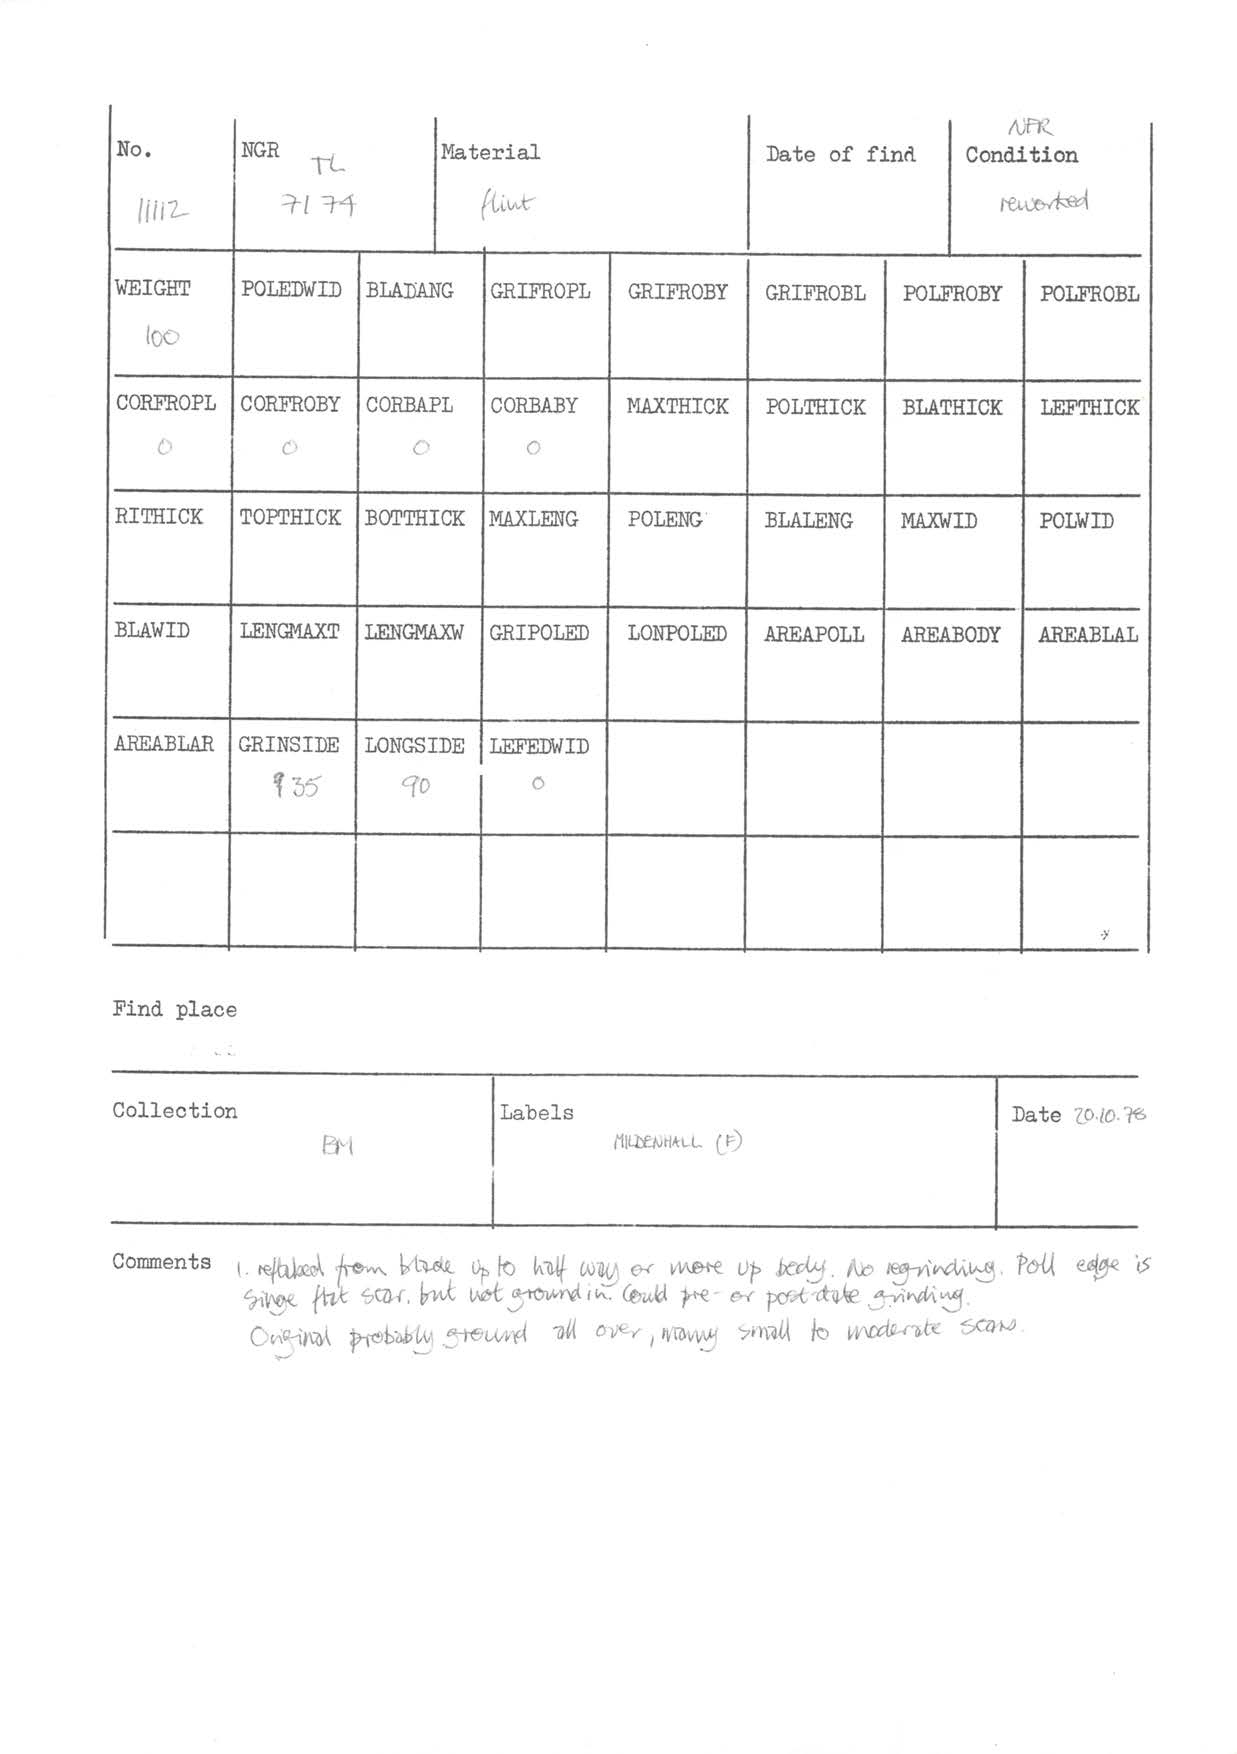 No. NGR TL Material Date of find NFR Condition
11112 7174 flint reworked
WEIGHT POLEDWID BLADANG GRIFROPL GRIFROBY GRIFROBL POLFROBY POLFROBL
100
CORFROPL CORFROBY CORBAPL CORBABY MAXTHICK POLTHICK BLATHICK LEFTHICK
0 0 0 0
RITHICK TOPTHICK BOTTHICK MAXLENG POLENG BLALENG MAXWID POLWID
BLAWID LENGMAXT LENGMAXW GRIPOLED LONPOLED AREAPOLL AREABODY AREABLAL
AREABLAR GRINSIDE LONGSIDE LEFEDWID
35 90 0
Find place
Collection Labels Date 20.10.78
BM MILDENHALL (F)
Comments 1. reflaked from blade up to half way or more up body. No regrinding. Poll edge is
singe flat scar, but not ground in. Could pre- or post-date grinding.
Original probably ground all over, many small to moderate scars.